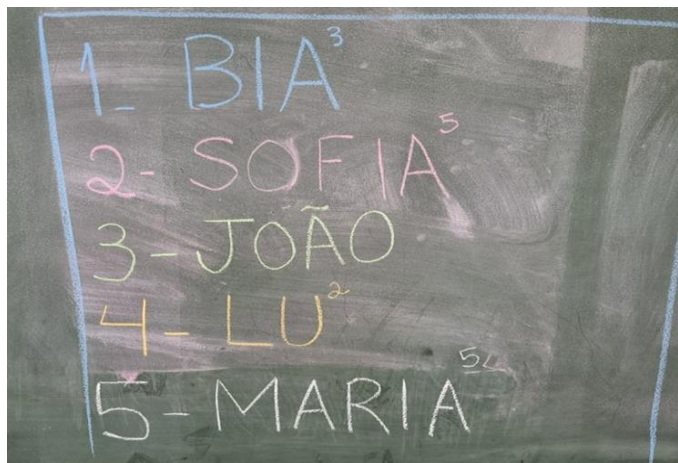 1- BIA³
2- SOFIA⁵
3- JOÃO
4- LU²
5- MARIA⁵